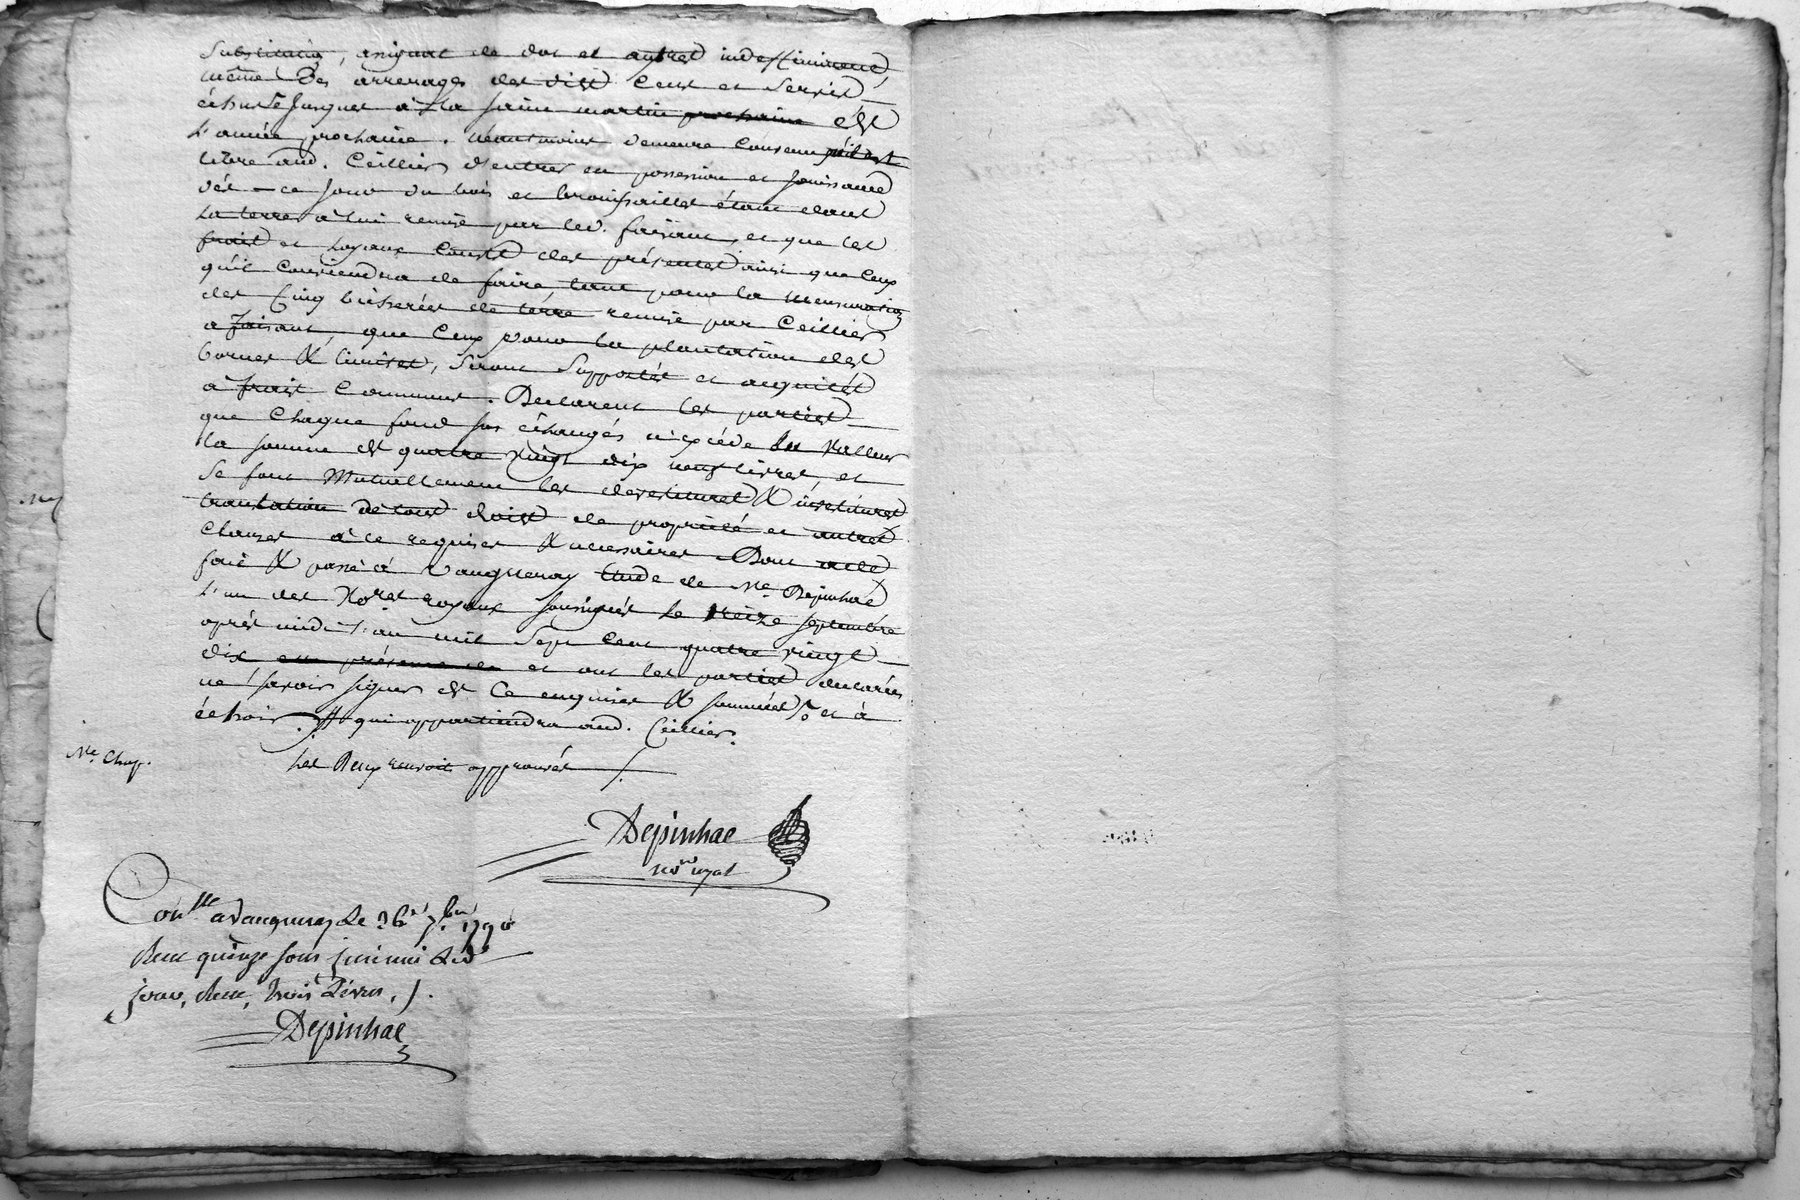 substitution, assignat de dot et autres indeffiniment
même des arrerages des dits Cens et servis
échus Jusques à la saint martin prochaine &
L'année prochaine. Neantmoins demeure Convenu
libre aud. Ceillier d'entrer en possession et Jouissance
dès-ce jour du bois et broussailles étant dans
La terre à lui remise par led. faisant, et que les
frais et Loyaux Cousts des présentes ainsi que Ceux
qu'il Conviendra de faire, tant pour la mensuration
des Cinq bicherées de térre remise par Ceillier
a faisant, que Ceux pour la plantation des
bornes & limites, seront supportés et acquités
à frais Communs. Déclarent les parties
que Chaque fond sus échangés n'excéde en Valleur
la somme de quatre vingt dix neuf livres, et
se font Mutuellement les devestitures & investitures
translation de tous droits de propriété et autres
Clauses à ce requises & necessaires. Dont acte
fait & passé à Vaugneray Etude de Me. Depinhac
L'un des Nores royaux soussignés le treize septembre
après midi l'an mil sept cent quatre vingt
dix et ont les parties declarées
ne savoir signer de Ce enquises & sommées et à
échoir. qui appartiendra aud. Ceillier.
Les Deux renvois approuvés
Depinhac
Nore royal
Conlle a Vaugneray Le 26e 7bre 1790
Reçu quinze sous
trois Livres,
Depinhac